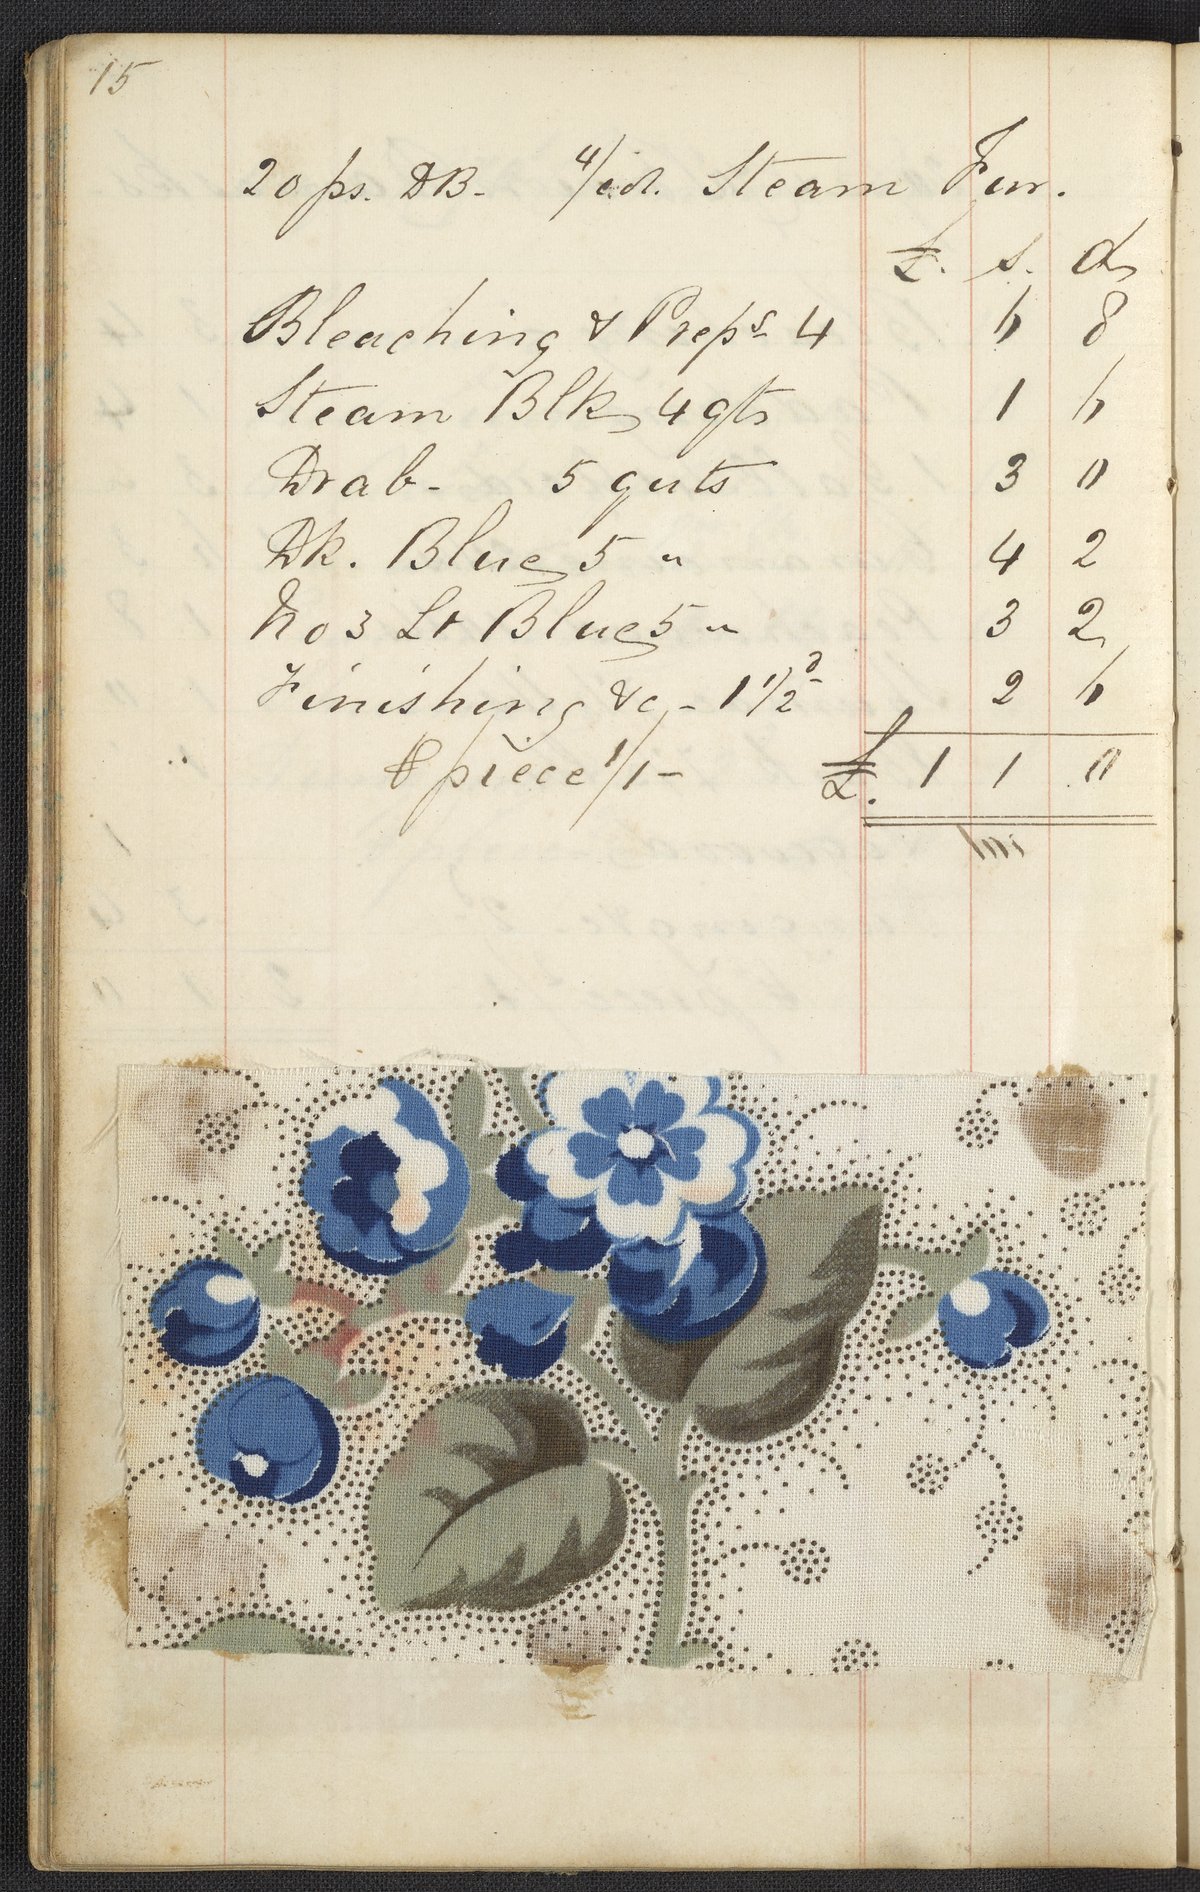 15
20 ps. DB- Steam Fur.
£. s. d
Bleaching & Preps 4 6 8
Steam Blk 4 qts 1 6
Drab - 5 qrts 3 0
Dk. Blue 5 " 4 2
No 3 Lt Blue 5 " 3 2
Finishing &c - 1 1/2 d 2 6
⅌ piece 1/1 - £. 1 1 0